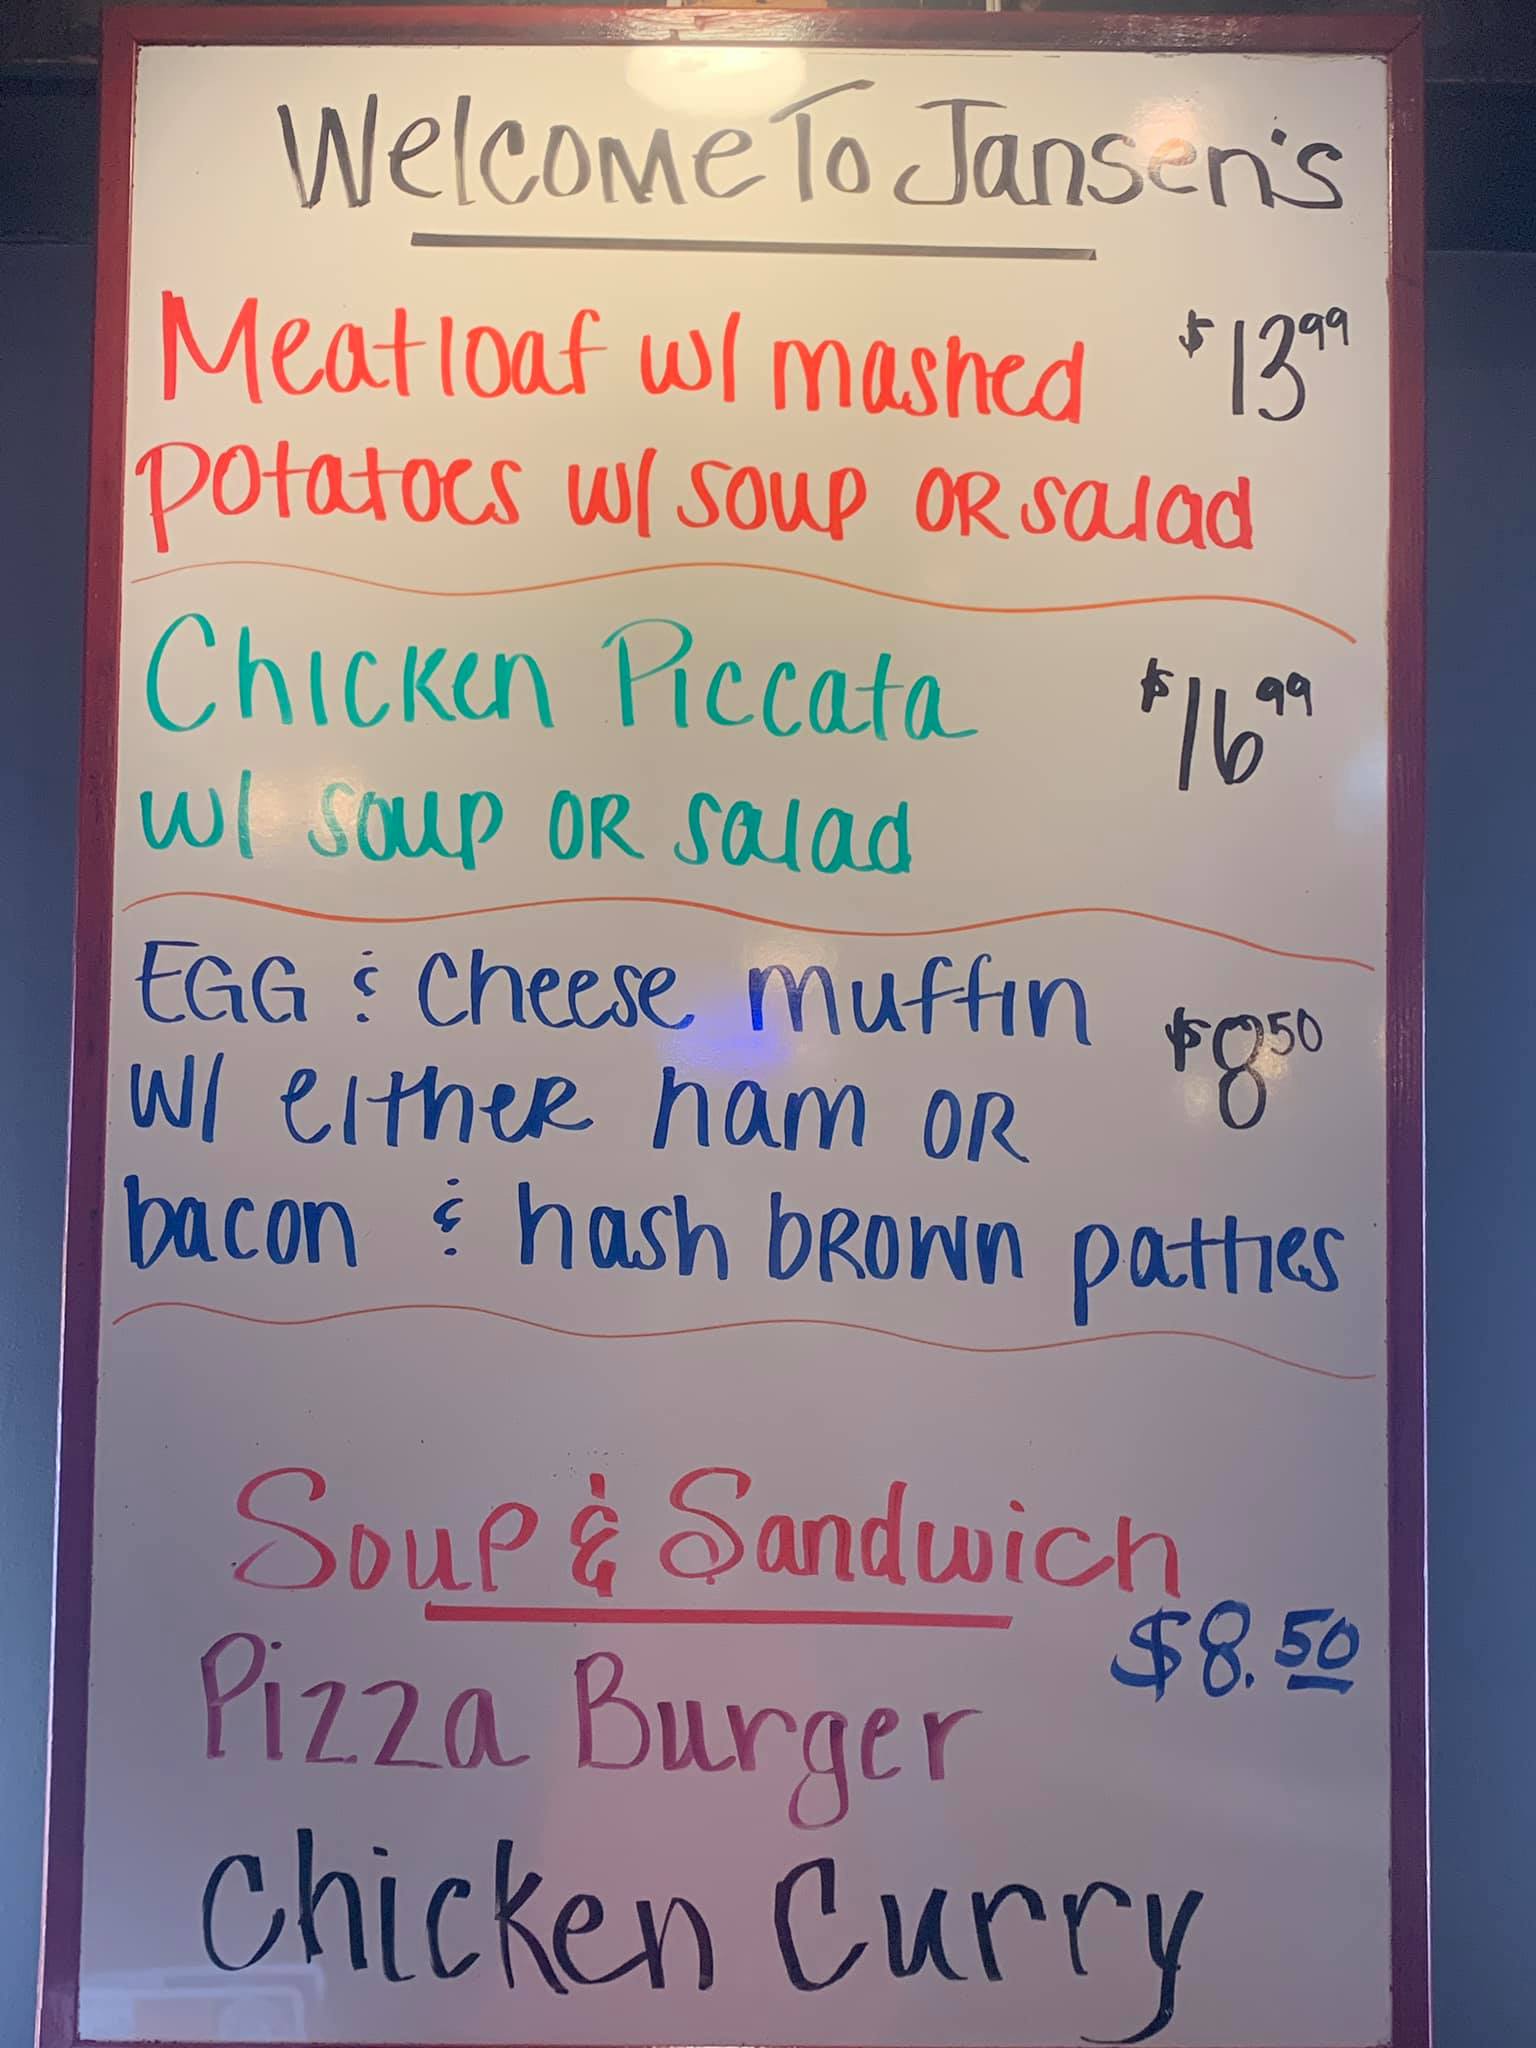 Welcome To Jansen's
Meatloaf w/ mashed $13.99
potatoes w/ soup or salad
Chicken Piccata $16.99
w/ soup or salad
EGG & cheese muffin $8.50
w/ either ham or
bacon & hash brown patties
Soup & Sandwich
$8.50
Pizza Burger
Chicken Curry